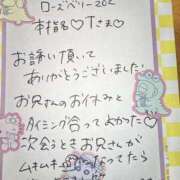 ローズベリー202
本指名♡Tさま♡
お誘い頂いて
ありがとうございました!
お兄さんのお休みと
タイミング合ってよかった♡
次会うときお兄さんが
ムキムキ なってたら